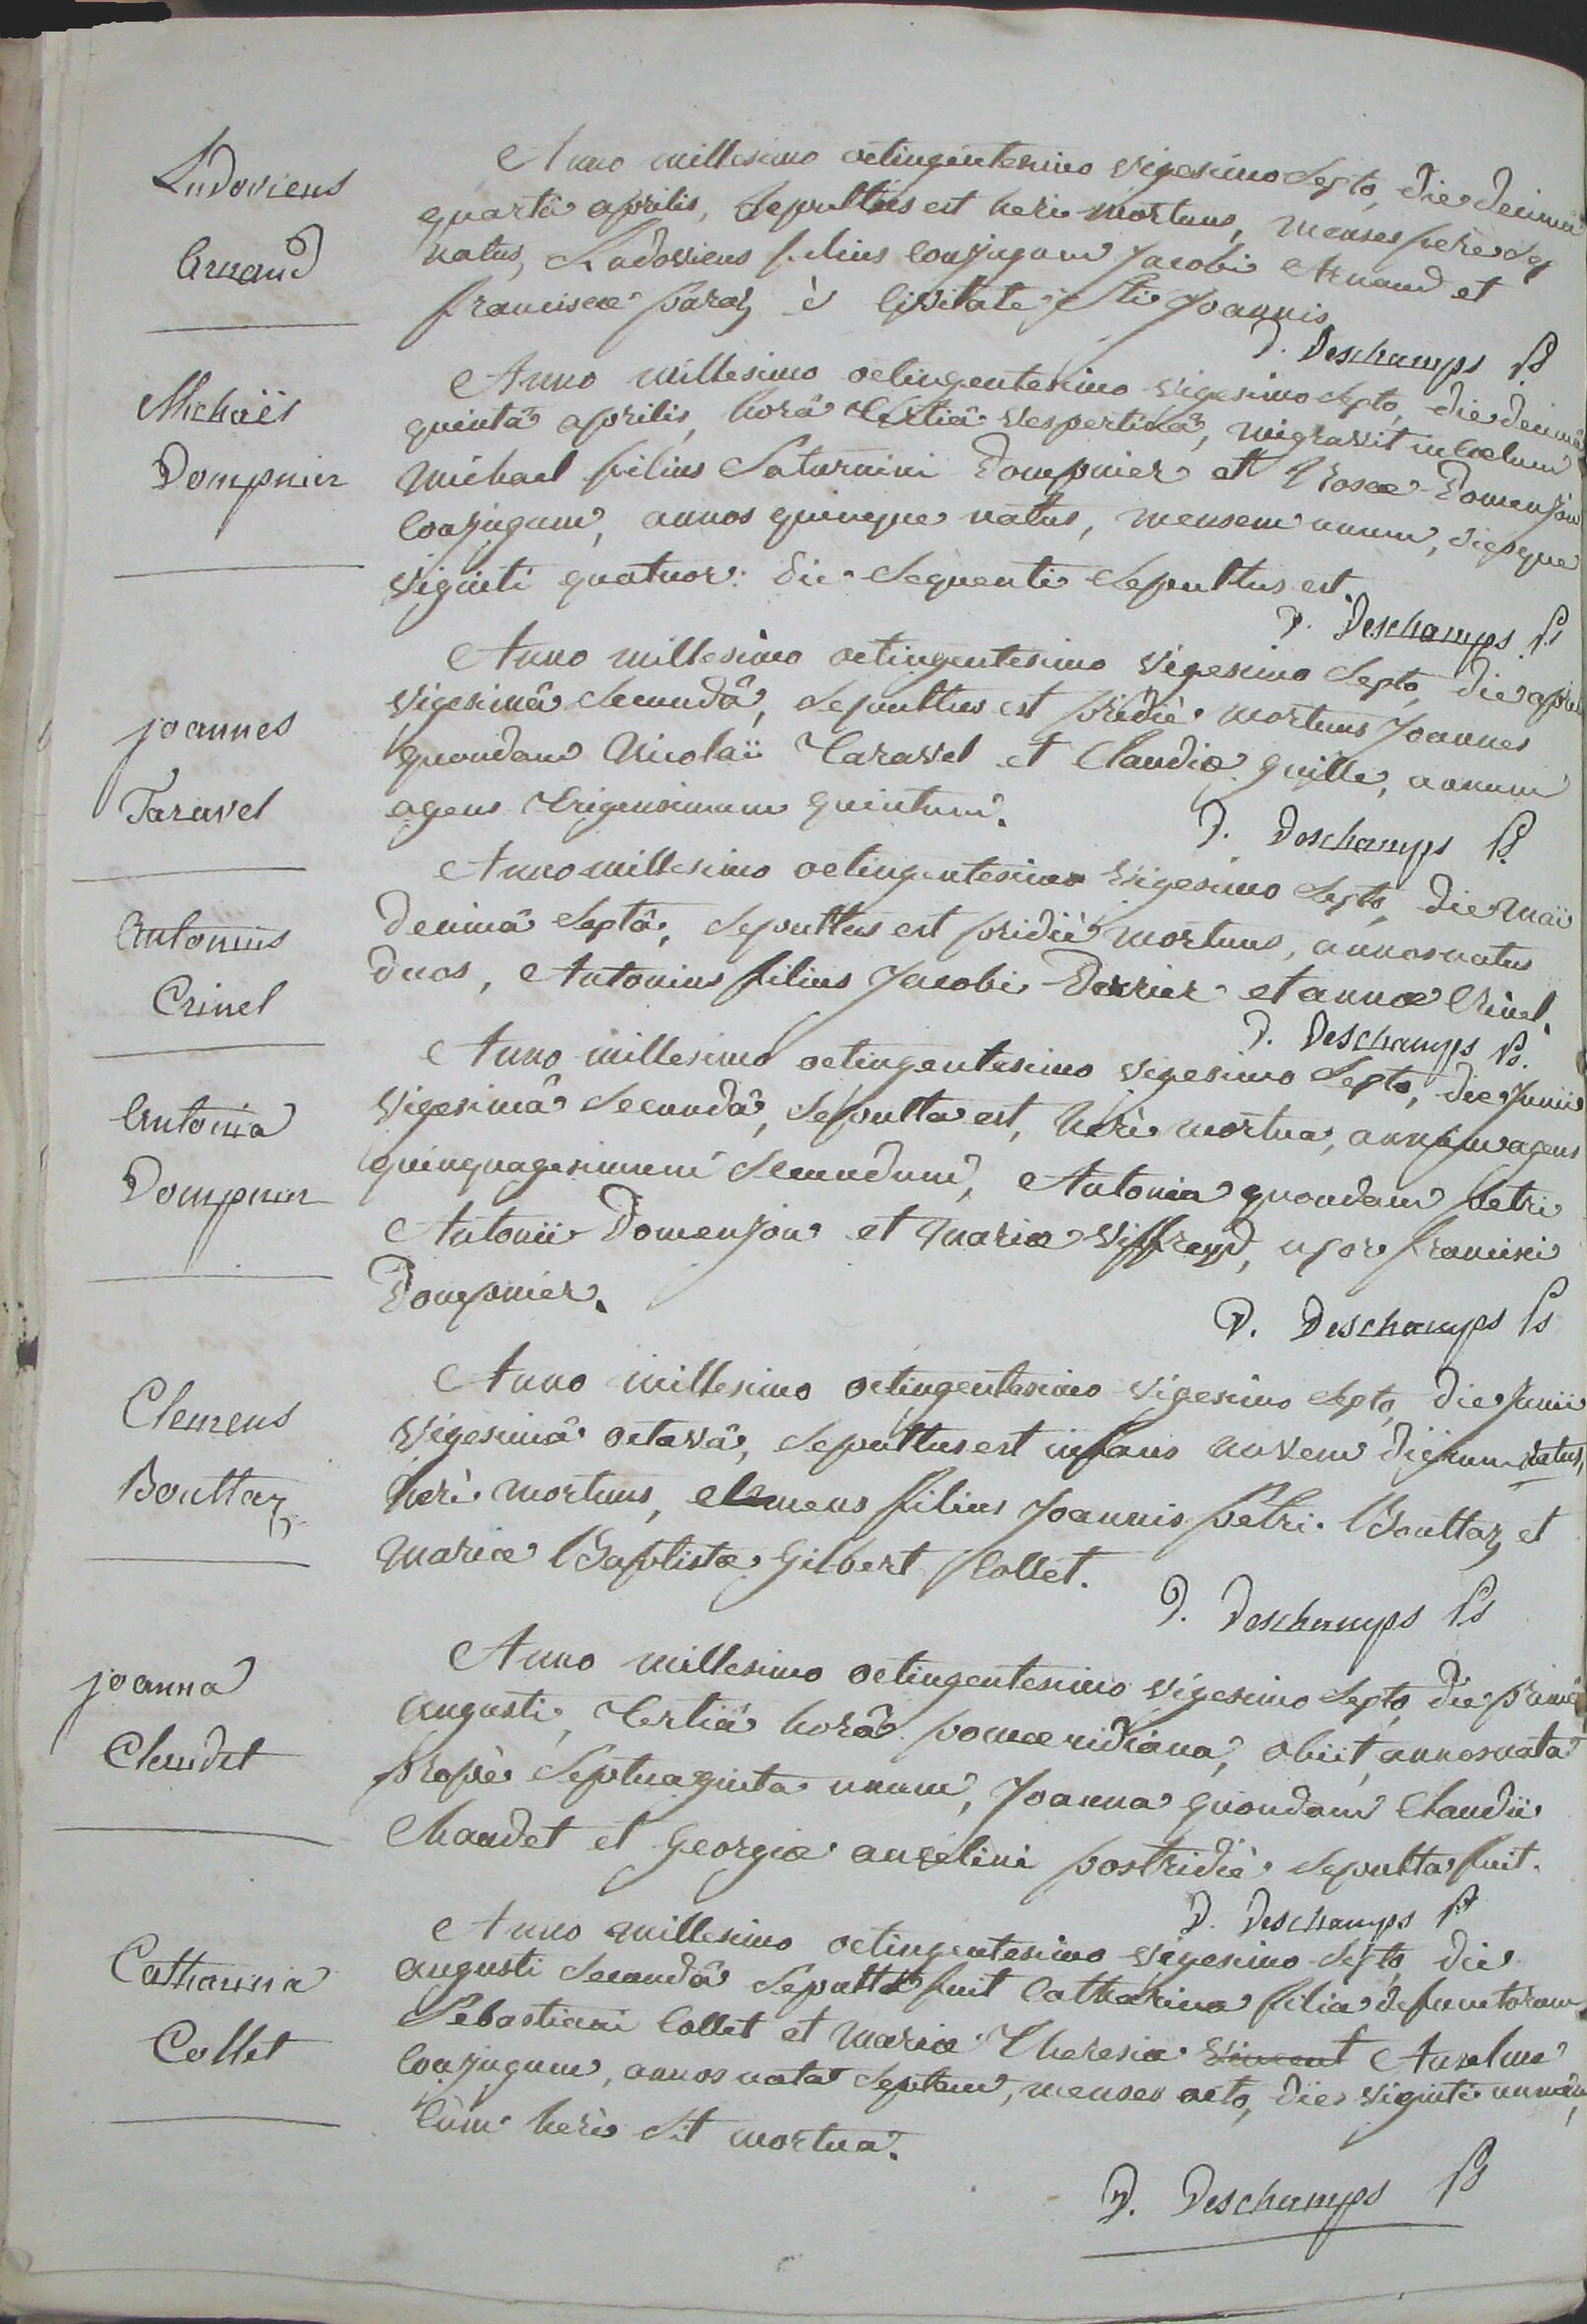 Ludovicus
Arnaud
Anno millesimo octingentesimo vigesimo septo, die decimâ
quartâ aprilis, sepultus est heri mortuus, menses ferè sex
natus, Ludovicus filius conjugum Jacobi Arnaud et
franciscæ paraz è civitate sti Joannis
D. Deschamps Ps
Michaël
Dompnier
Anno millesimo octingentesimo vigesimo septo, die decimâ
quintâ aprilis, horâ tertiâ vespertinâ, migravit in Cælum
Michael filius Saturnini Dompnier et Rosæ Domenjon
conjugum, annos quinque natus, mensem unum, diesque
viginti quatuor: die sequenti sepultus est.
D. Deschamps Ps
joannes
Taravel
Anno millesimo octingentesimo vigesimo septo, die aprilis
vigesimâ secundâ, sepultus est pridiè mortuus Joannes
quondam Nicolaï Taravel et Claudiæ guille, annum
agens trigensimum quintum.
D. Deschamps Ps
Antonius
Crinel
Anno millesimo octingentesimo vigesimo septo, die maii
decimâ septâ, sepultus est pridiè mortuus, annos natus
duos, Antonius filius Jacobi Derrier et annæ Crinel.
D. Deschamps Ps.
Antonia
Dompnier
Anno millesimo octingentesimo vigesimo septo, die Junii
vigesimâ secundâ, sepulta est, heri mortua, annum agens
quinquagesimum secundum, Antonia quondam petri
Antonii Domenjon et Mariæ Viffreyd, uxor francisci
Dompnier.
D. Deschamps Ps
Clemens
Bouttaz
Anno millesimo octingentesimo vigesimo septo, die Junii
vigesimâ octavâ, sepultus est infans novem dierum natus,
heri mortuus, clemens filius Joannis petri Bouttaz et
Mariæ Baptistæ Gilbert Collet.
D. Deschamps Ps
joanna
Claudet
Anno millesimo octingentesimo vigesimo septo, die primâ
augusti, tertiâ horâ pomeridiana, obiit, annos nata
propè septuaginta unum, Joanna quondam Claudii
Claudet et Georgiæ anselini postridiè sepulta fuit.
D. Deschamps Ps
Catharina
Collet
Anno millesimo octingentesimo vigesimo septo, die
augusti secundâ sepulta fuit Catharina filia defunctorum
Sebastiani Collet et Mariæ Theresiæ Vincent Anselme
conjugum, annos nata septem, menses octo, dies viginti unum,
cùm heri sit mortua.
D. Deschamps Ps